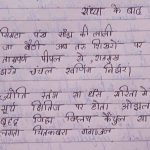 संध्या के बाद
सिमटा पंख साँझ की लाली
जा बैठी अब तरु शिखरों पर
ताम्रपर्ण पीपल से, शतमुख
झरते चंचल स्वर्णिम निर्झर!
ज्योति स्तंभ सा धँस सरिता में
सूर्य क्षितिज पर होता ओझल
बृहद् जिह्म विश्लथ केंचुल सा
लगता चितकबरा गंगाजल